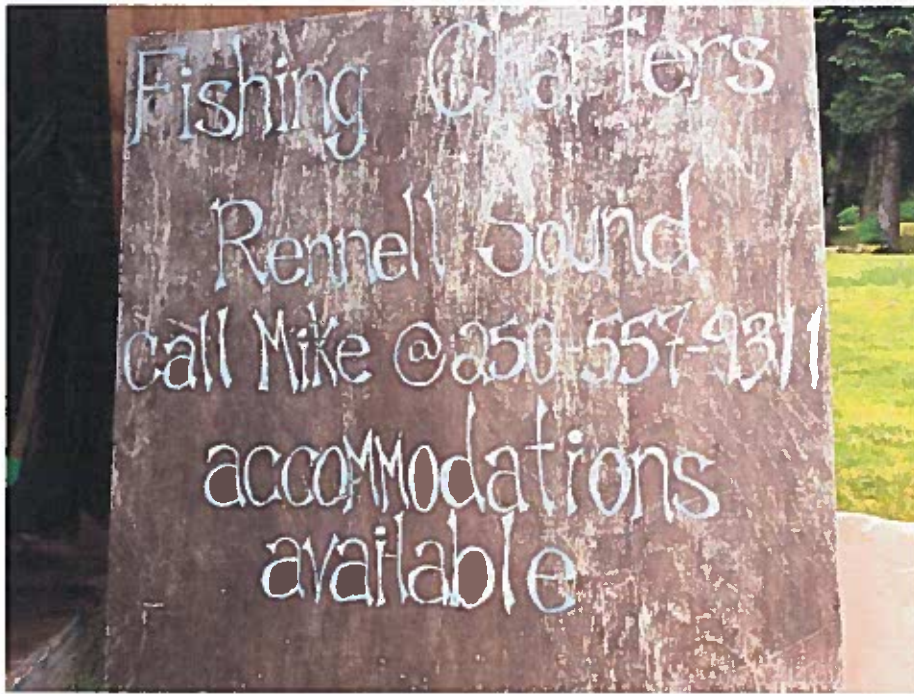 Fishing Charters
Rennell Sound
call Mike @ 250-557-9311
accoMModations
available